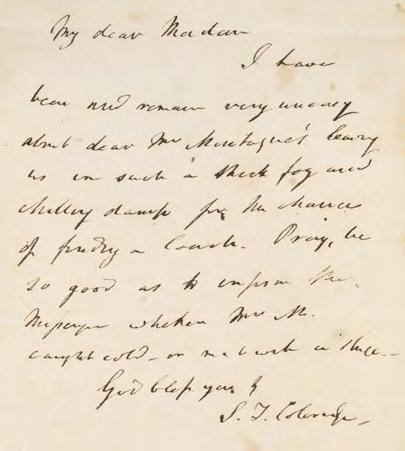 My dear Madam
I have
been and remain very uneasy
about dear Mrs Montague's leaving
us in such a thick fog and
chilly damp for the chance
of finding a Coach. Pray, be
so good as to inform the
Messenger whether Mrs M.
caught cold – or met with a Stage –
God bless you &
S. T. Coleridge –